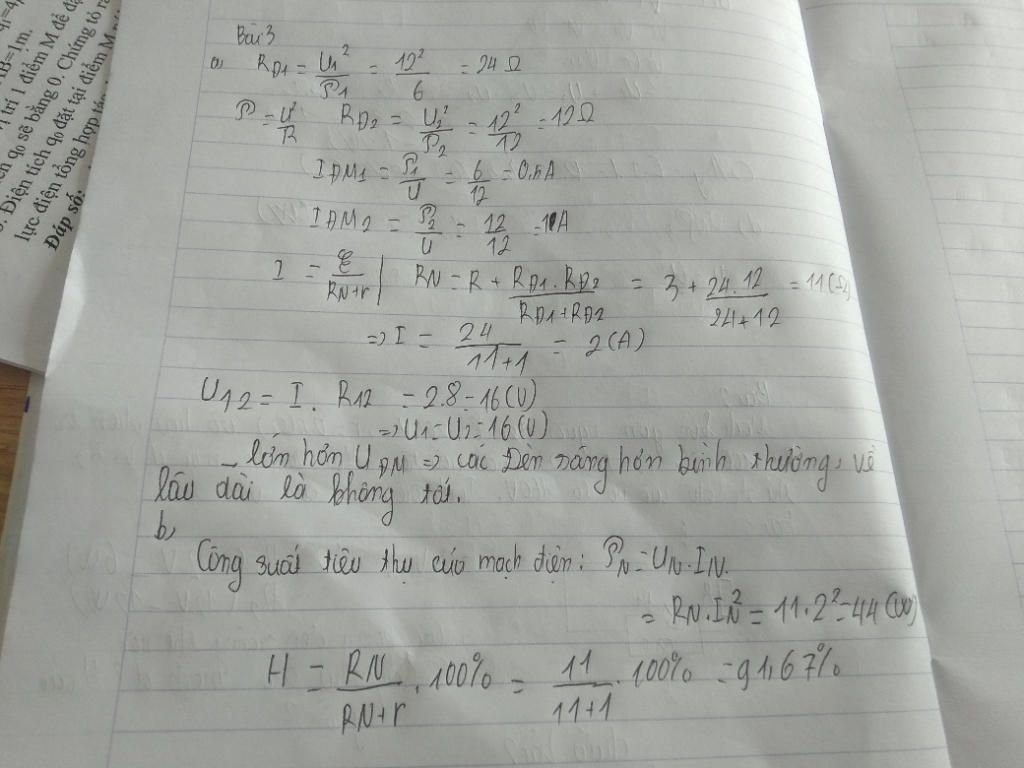 q₁=4
AB=1m.
ị trí 1 điểm M để đặ
ên q₀ sẽ bằng 0. Chứng tỏ rằ
. Điện tích q₀ đặt tại điểm M
lực điện tổng hợp
Đáp số:
Bài 3
a, R_Đ1 = U₁²/P₁ = 12²/6 = 24 Ω
P = U²/R R_Đ2 = U₂²/P₂ = 12²/12 = 12Ω
I_ĐM1 = P₁/U = 6/12 = 0,5A
I_ĐM2 = P₂/U = 12/12 = 1A
I = ξ/(RN+r) | RN = R + (R_Đ1 . R_Đ2)/(R_Đ1+R_Đ2) = 3 + (24.12)/(24+12) = 11(Ω)
=> I = 24/(11+1) = 2(A)
U₁₂ = I . R₁₂ = 2.8 = 16(V)
=> U₁ = U₂ = 16(V)
_ lớn hơn U_ĐM => các Đèn sáng hơn bình thường, về
lâu dài là không tốt.
b,
Công suất tiêu thụ của mạch điện: P_N = U_N.I_N.
= R_N.I_N² = 11.2² = 44(W)
H = RN/(RN+r) . 100% = 11/(11+1) . 100% = 91,67%